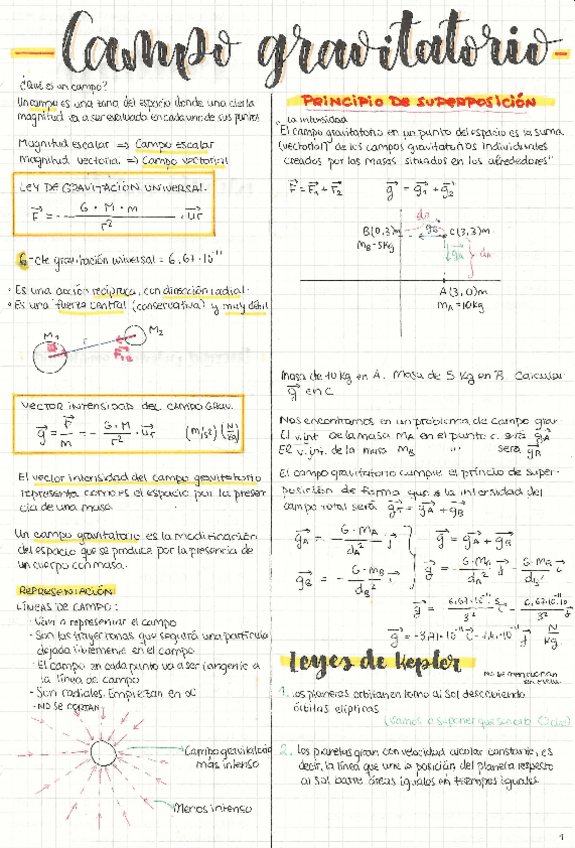 Campo gravitatorio
¿Qué es un campo?
Un campo es una zona del espacio donde una cierta
magnitud va a ser evaluada en cada uno de sus puntos
Magnitud escalar ⇒ Campo escalar
magnitud vectorial ⇒ Campo vectorial
LEY DE GRAVITACIÓN UNIVERSAL.
F = - G · M · m / r² · ur
G - cte gravitación universal = 6,67·10⁻¹¹
· Es una acción recíproca, con dirección radial.
· Es una fuerza central (conservativa) y muy débil
M1 r M2
F12
VECTOR INTENSIDAD DEL CAMPO GRAV.
g = F / m = - G · M / r² · ur (m/s²) (N/kg)
El vector intensidad del campo gravitatorio
representa como es el espacio por la presen-
cia de una masa.
Un campo gravitatorio es la modificación
del espacio que se produce por la presencia de
un cuerpo con masa.
REPRESENTACIÓN
LÍNEAS DE CAMPO:
- Van a representar el campo
- Son las trayectorias que seguirá una partícula
dejada libremente en el campo
- El campo en cada punto va a ser tangente a
la línea de campo
- Son radiales. Empiezan en ∞
- NO SE CORTAN
Campo gravitatorio
más intenso
Menos intenso
PRINCIPIO DE SUPERPOSICIÓN
la intensidad
"El campo gravitatorio en un punto del espacio es la suma
(vectorial) de los campos gravitatorios individuales
creados por las masas situadas en los alrededores"
F = F1 + F2 g = g1 + g2
dB
B(0,3)m gB C(3,3)m
mB = 5kg gA dA
A(3,0)m
mA = 10kg
Masa de 10 kg en A. Masa de 5 kg en B. Calcular
g en C
Nos encontramos en un problema de campo grav.
El v.int de la masa mA en el punto c. será gA
El v.int. de la masa mB " será gB
El campo gravitatorio cumple el principio de super-
posición de forma que la intensidad del
campo total será gT = gA + gB
gA = - G · mA / dA² j g = gA + gB
gB = - G · mB / dB² i g = - G·mA / dA² j - G·mB / dB²
g = - 6,67·10⁻¹¹ / 3² - 6,67·10⁻¹¹ / 3²
N / kg
Leyes de Kepler
1. Los planetas orbitan en torno al Sol describiendo
órbitas elípticas
(vamos a suponer que son
2. Los planetas giran con velocidad areolar constante, es
decir, la línea que une la posición del planeta respecto
al sol barre áreas iguales en tiempos iguales
1